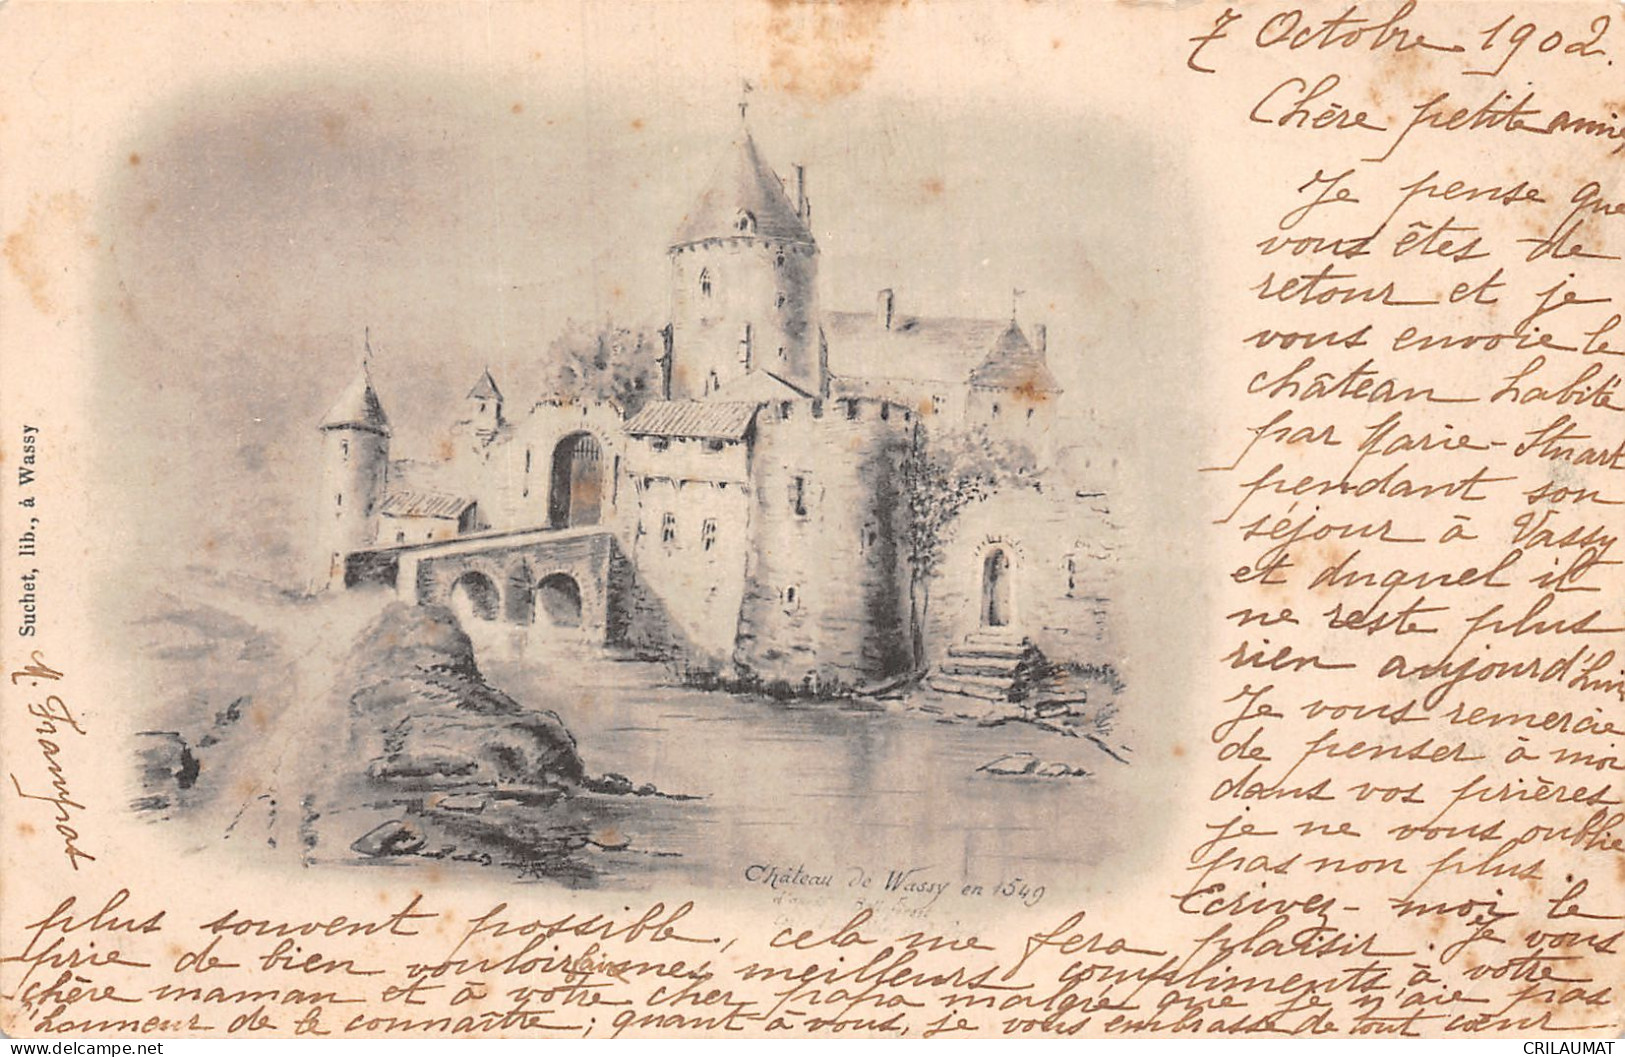 7 Octobre 1902.
Chère petite amie,
Je pense que
vous êtes de
retour et je
vous envoie le
château habité
par Marie-Stuart
pendant son
séjour à Vassy
et duquel il
ne reste plus
rien aujourd'hui
Je vous remercie
de penser à moi
dans vos prières
je ne vous oublie
pas non plus.
Ecrivez-moi le
plus souvent possible, cela me fera plaisir. Je vous
prie de bien vouloir faire mes meilleurs compliments à votre
chère maman et à votre cher papa malgré que je n'aie pas
l'honneur de le connaître; quant à vous, je vous embrasse de tout cœur
Suchet, lib., à Wassy
Château de Wassy en 1549
CRILAUMAT